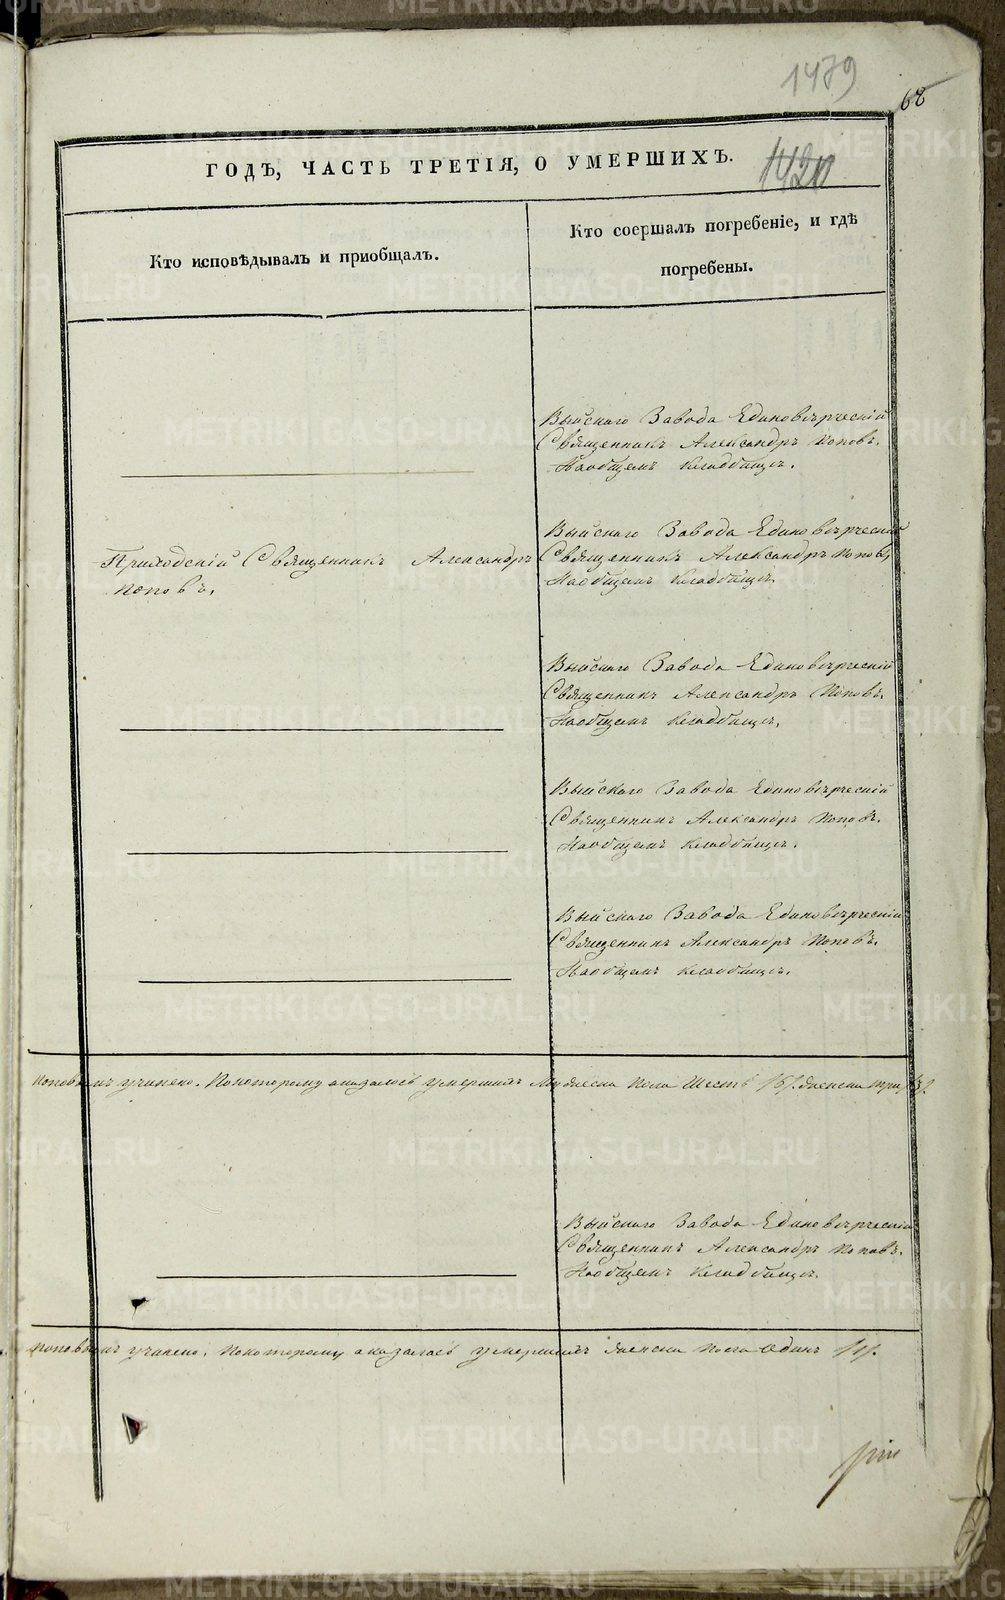 1479
68
ГОДЪ, ЧАСТЬ ТРЕТІЯ, О УМЕРШИХЪ.
1420
Кто исповѣдывалъ и приобщалъ.
Кто соершалъ погребеніе, и гдѣ
погребены.
Выйскаго Завода Единовѣрческій
Священникъ Александръ Поповъ.
Наобщемъ Кладбищѣ.
Приходскій Священникъ Александръ
Поповъ.
Выйскаго Завода Единовѣрческій
Священникъ Александръ Поповъ,
Наобщемъ Кладбищѣ.
Выйскаго Завода Единовѣрческій
Священникъ Александръ Поповъ.
Наобщемъ Кладбищѣ.
Выйскаго Завода Единовѣрческій
Священникъ Александръ Поповъ.
Наобщемъ Кладбищѣ.
Выйскаго Завода Единовѣрческій
Священникъ Александръ Поповъ.
Наобщемъ Кладбищѣ.
Поповымъ учинено. Покоторому оказалось умершихъ Мужеска Пола Шесть /6/. Женска три /3/.
Выйскаго Завода Единовѣрческій
Священникъ Александръ Поповъ.
Наобщемъ Кладбищѣ.
Поповымъ учинено. Покоторому оказалось умершихъ Женска Пола Одинъ /1/.
METRIKI.GASO-URAL.RU